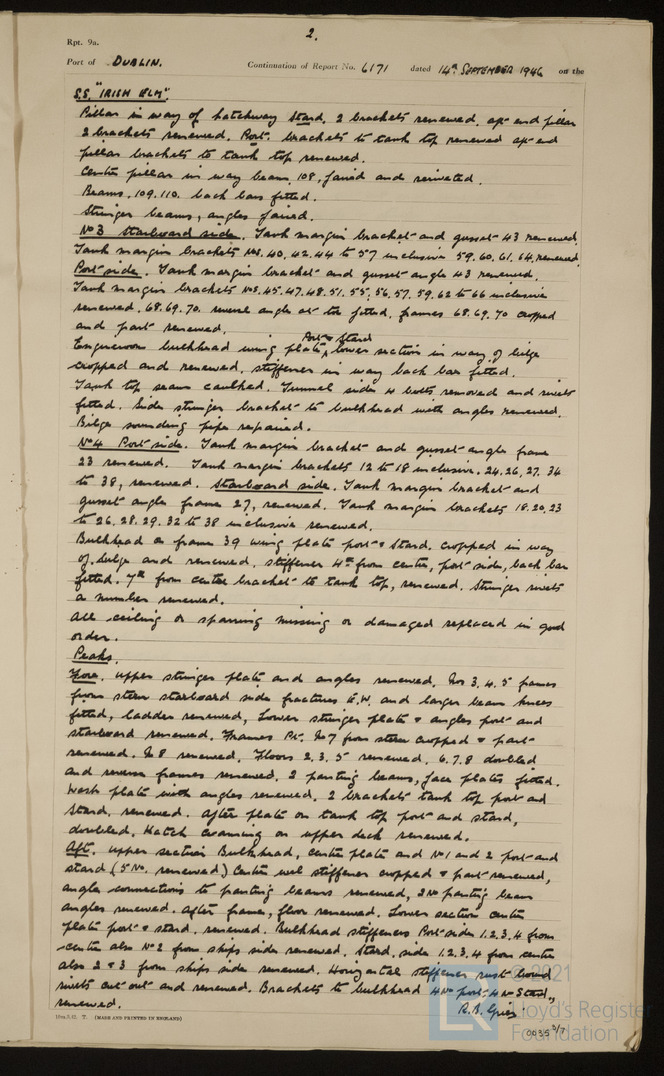 2.
Rpt. 9a.
Port of DUBLIN. Continuation of Report No. 6171 dated 14th SEPTEMBER 1946 on the
S.S. "IRISH ELM".
Pillar in way of hatchway Stard. 2 brackets renewed. aft end pillar
2 brackets renewed. Port. brackets to tank top renewed aft end
pillar brackets to tank top renewed.
Centre pillar in way beam 108, faired and reriveted.
Beams. 109.110. back bars fitted.
Stringer beams, angles faired.
No 3 Starboard side. Tank margin bracket and gusset 43 renewed.
Tank margin brackets Nos. 40, 42, 44 to 57 inclusive 59.60.61.64, renewed.
Port side. Tank margin bracket and gusset angle 43 renewed.
Tank margin brackets Nos. 45.47.48.51.55.56.57.59.62 to 66 inclusive
renewed. 68.69.70. reverse angles at toe fitted, frames 68.69.70 cropped
and part renewed.
Engineroom bulkhead wing plate, Port & Stard lower section in way of bilge
cropped and renewed, stiffener in way back bar fitted.
Tank top seams caulked. Tunnel sides 4 bolts removed and rivets
fitted. Side stringer bracket to bulkhead with angles renewed.
Bilge sounding pipe repaired.
No 4 Port side. Tank margin bracket and gusset angle frame
23 renewed. Tank margin brackets 12 to 18 inclusive. 24.26, 27. 34
to 38, renewed. Starboard side. Tank margin bracket and
gusset angle frame 27, renewed. Tank margin brackets 18.20,23
to 26.28.29.32 to 38 inclusive renewed.
Bulkhead on frame 39 wing plate port & Stard. cropped in way
of bilge and renewed, stiffener 4th from centre, port side, back bar
fitted. 7th from centre bracket to tank top, renewed. Stringer rivets
a number renewed.
All ceiling or sparring missing or damaged replaced in good
order.
Peaks.
Fore. upper stringer plate and angles renewed, Nos 3.4.5 frames
from stem starboard side fractures E.W. and larger beam knees
fitted, ladder renewed, Lower stringer plate & angles port and
starboard renewed. Frames Pt. No 7 from stem cropped & part
renewed. No 8 renewed. Floors 2.3.5 renewed. 6.7.8 doubled
and reverse frames renewed. 2 panting beams, face plates fitted.
Wash plate with angles renewed. 2 brackets tank top port and
Stard, renewed. After plate on tank top port and stard,
doubled, Hatch coaming on upper deck renewed.
Aft. upper section Bulkhead, centre plate and No 1 and 2 port and
stard (5 No. renewed) Centre web stiffener cropped & part renewed,
angle connections to panting beams renewed, 2 No panting beam
angles renewed. After frame, floor renewed. Lower section centre
plate port & stard. renewed. Bulkhead stiffeners Port side 1.2.3.4 from
centre also No 2 from ships side renewed. Stard. side 1.2.3.4 from centre
also 2 & 3 from ships side renewed. Horizontal stiffener rust bound
rivets cut out and renewed. Brackets to bulkhead 4 No port, 4 No Stard,
renewed.
(MADE AND PRINTED IN ENGLAND)
© 2021
LR
Lloyd's Register
Foundation
0035 3/7